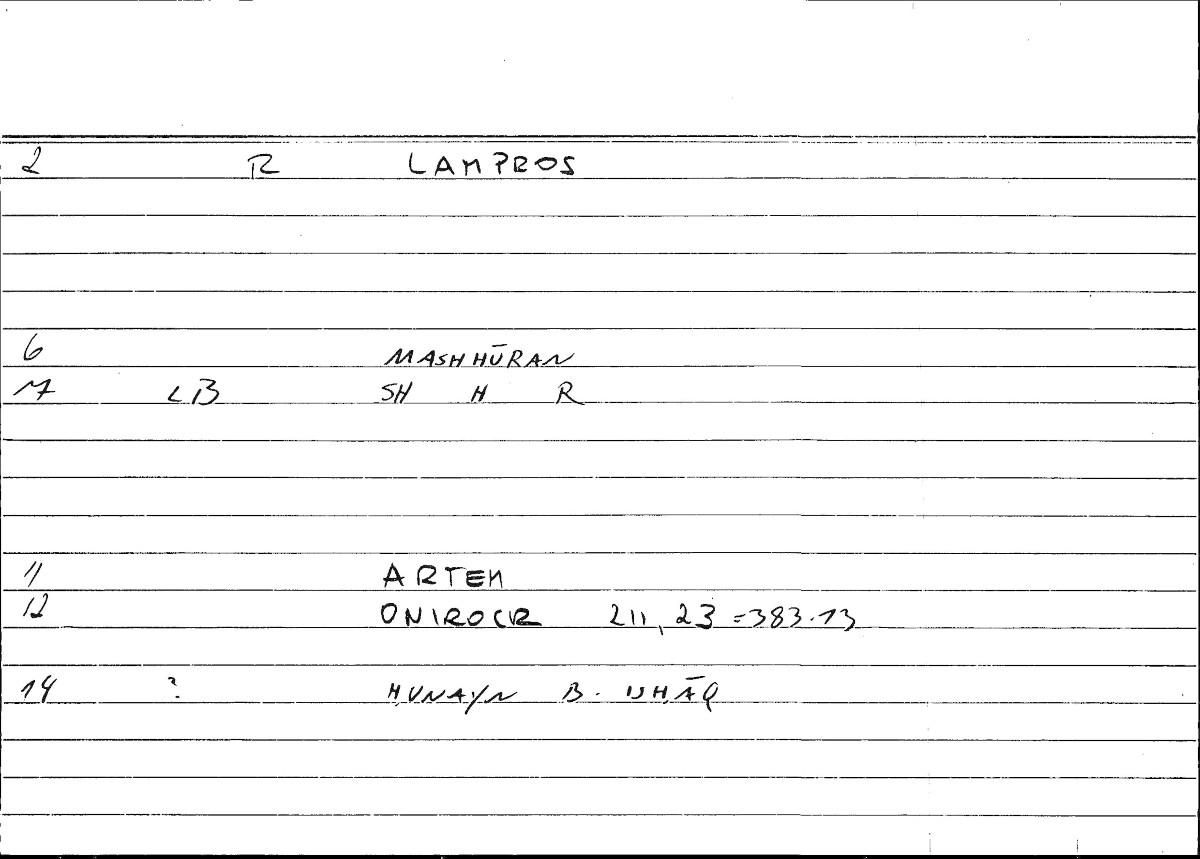 2 R LAMPROS
6 MASHHŪRAN
17 LB SH H R
11 ARTEM
12 ONIROCR 211, 23 = 383.13
14 ? ḤUNAYN B. ISḤĀQ